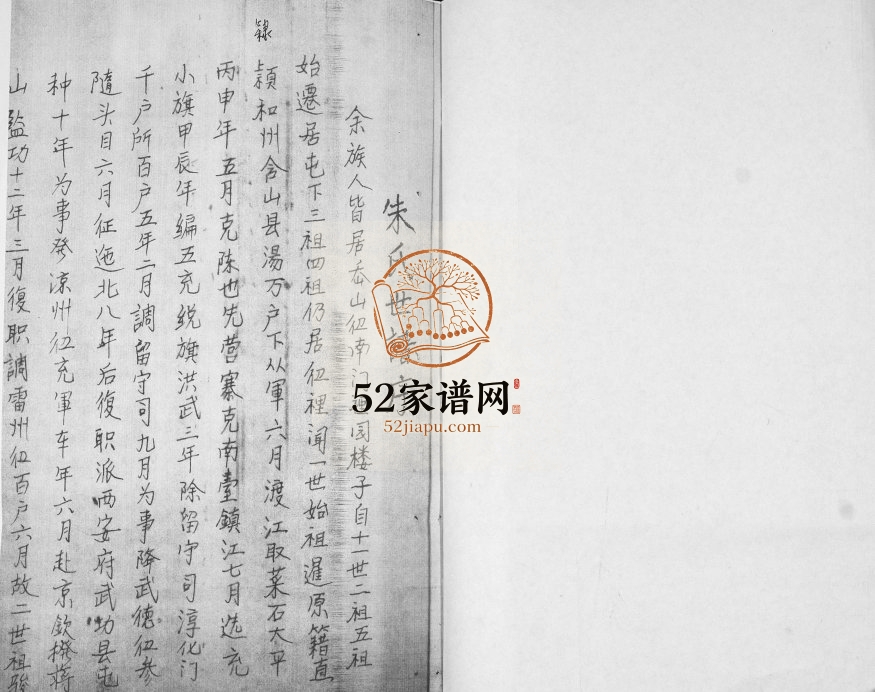 朱氏世譜序
余族人皆居盃山衛南门西园楼子自十一世二祖五祖
始遷居屯下三祖四祖仍居衛裡闻一世始祖暹原籍直
隸
頴和州含山县湯万户下从軍六月渡江取菜石太平
丙申年五月克陳也先营寨克南臺鎮江七月选充
小旗甲辰年编五充総旗洪武三年除留守司淳化门
千户所百户五年二月調留守司九月为事降武德衛参
隨头目六月征迤北八年后復职派西安府武功县屯
种十年为事発凉州衛充軍本年六月赴京欽撥蒋
山監功十二年三月復职調雷州衛百户六月故二世祖
52家谱网
52jiapu.com